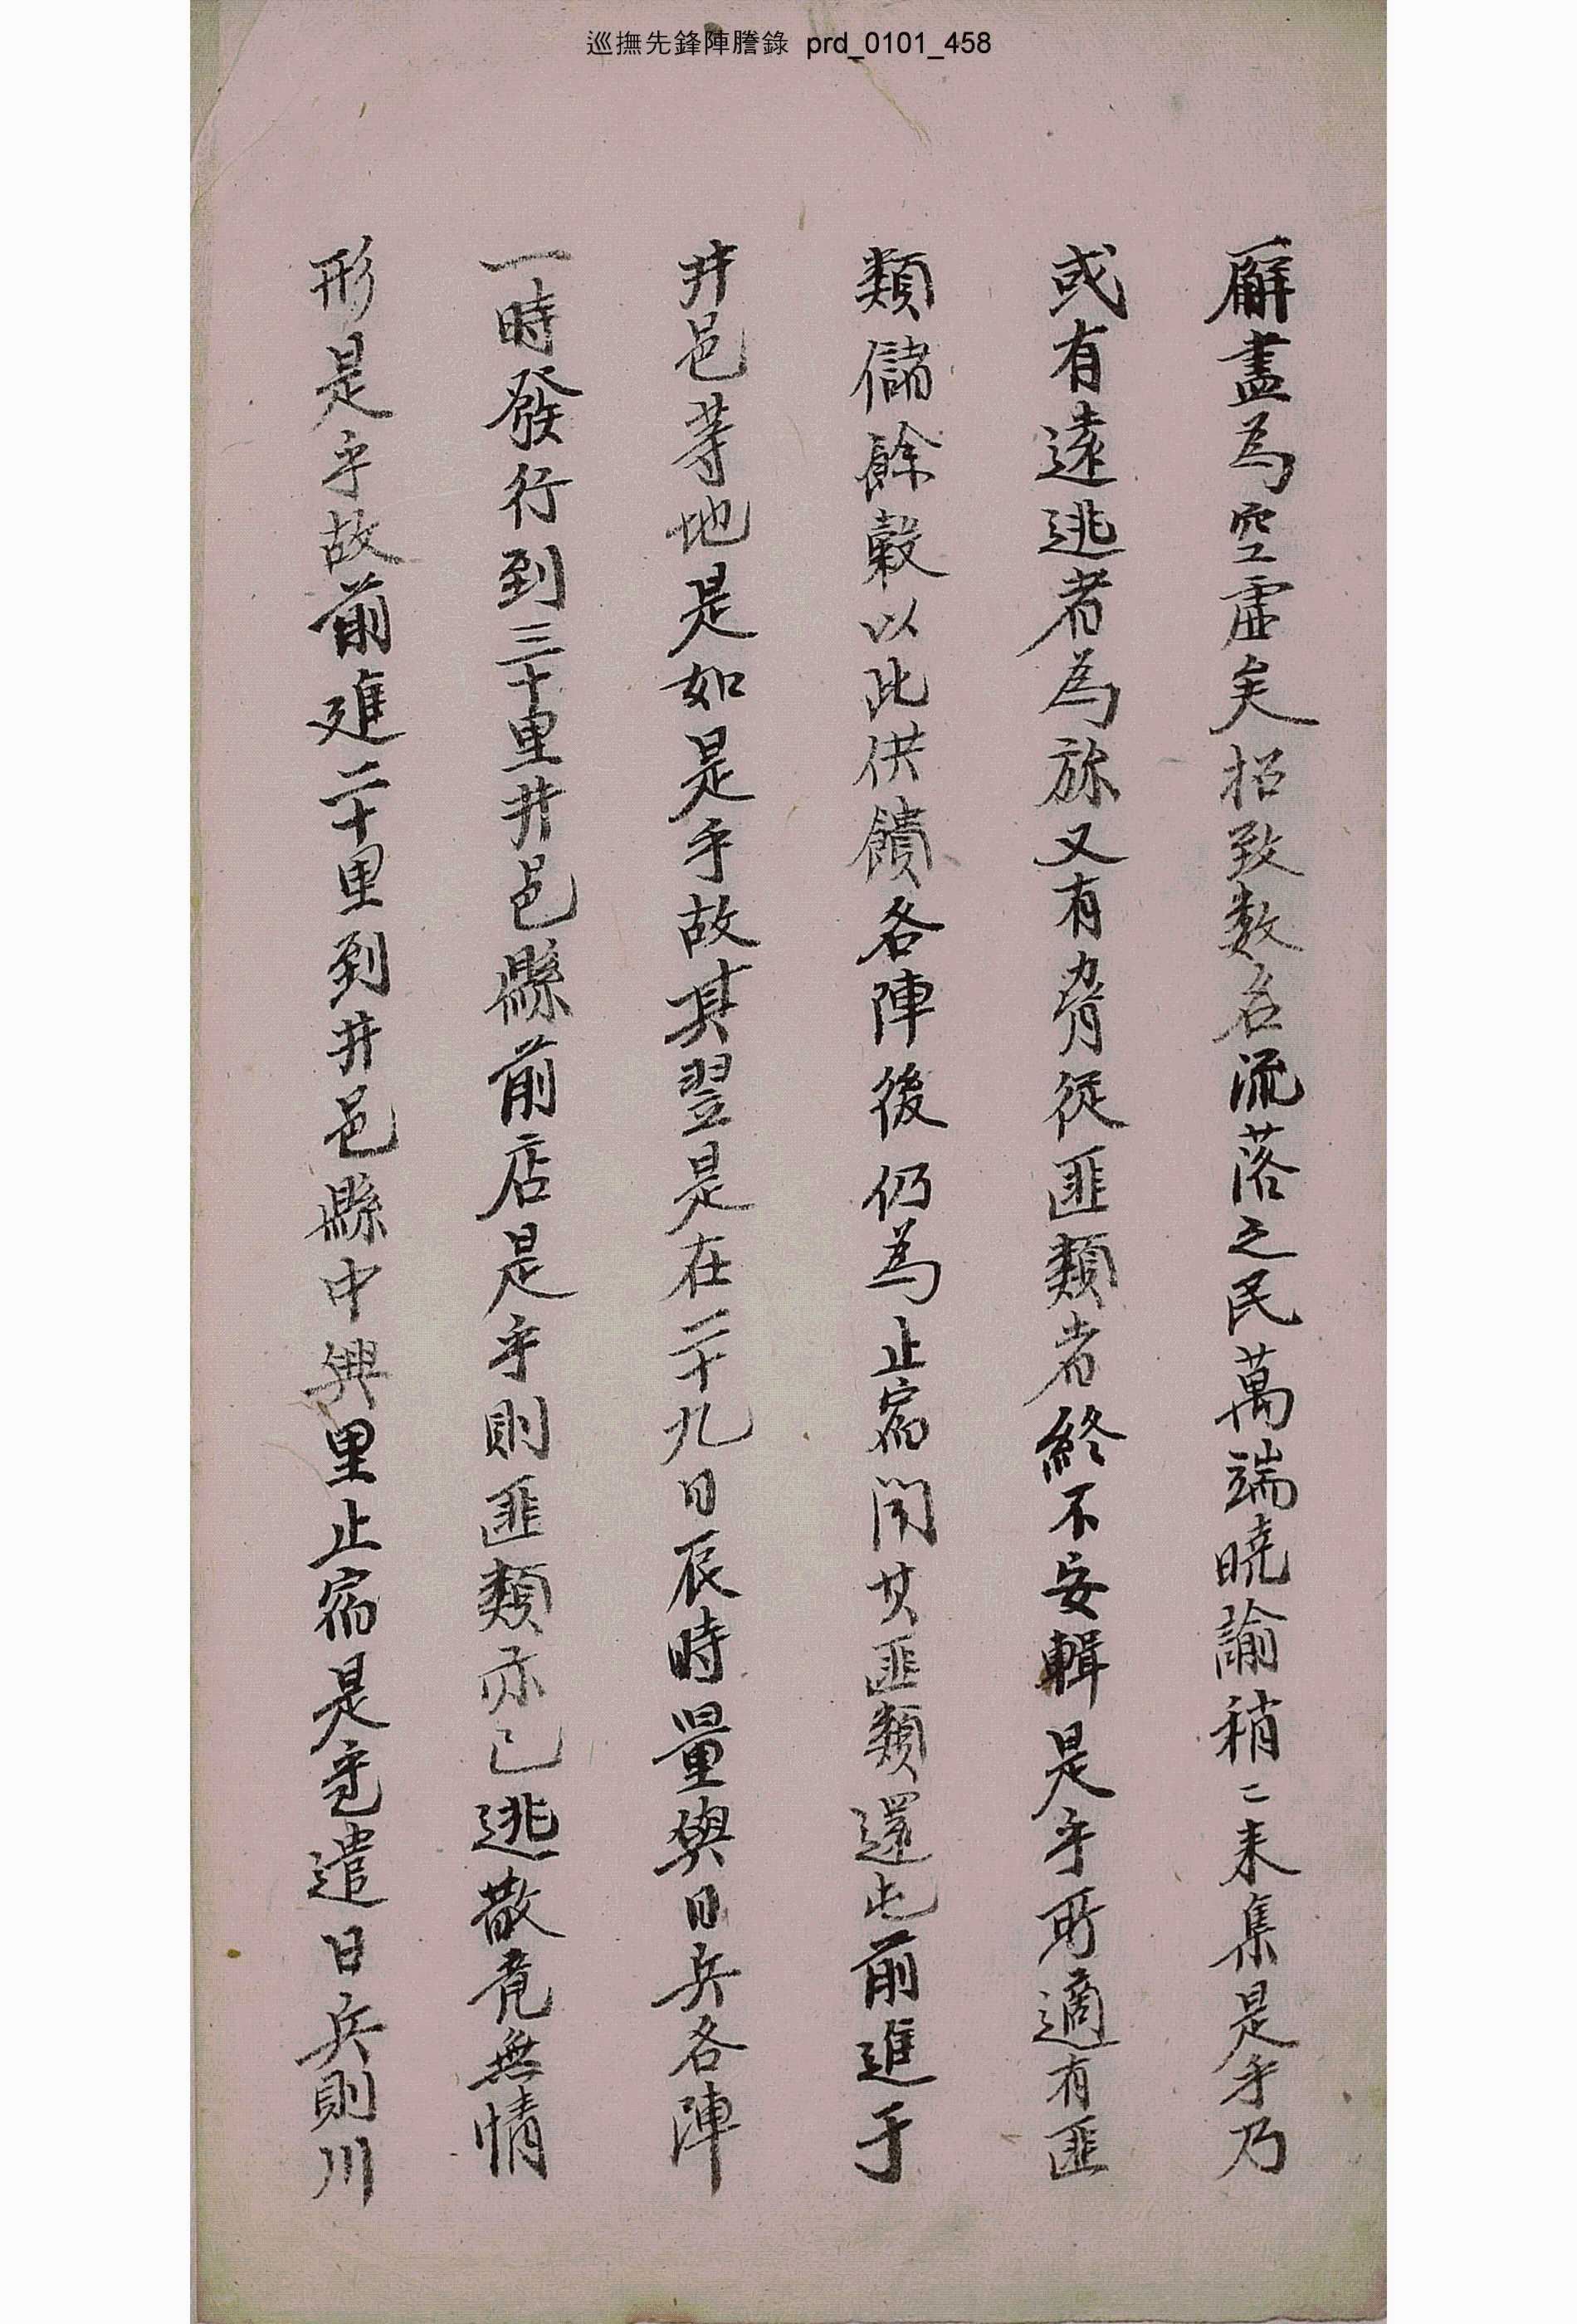 巡撫先鋒陣謄錄 prd_0101_458
廨盡爲空虛矣招致數名流落之民萬端曉諭稍〻来集是乎乃
或有遠逃者爲旀又有脅從匪類者終不安輯是乎所適有匪
類儲餘穀以此供饋各陣後仍爲止宿聞其匪類還屯前進于
井邑等地是如是乎故其翌是在二十九日辰時量與日兵各陣
一時發行到三十里井邑縣前店是乎則匪類亦已逃散竟無情
形是乎故前進二十里到井邑縣中興里止宿是乎㫆遣日兵則川